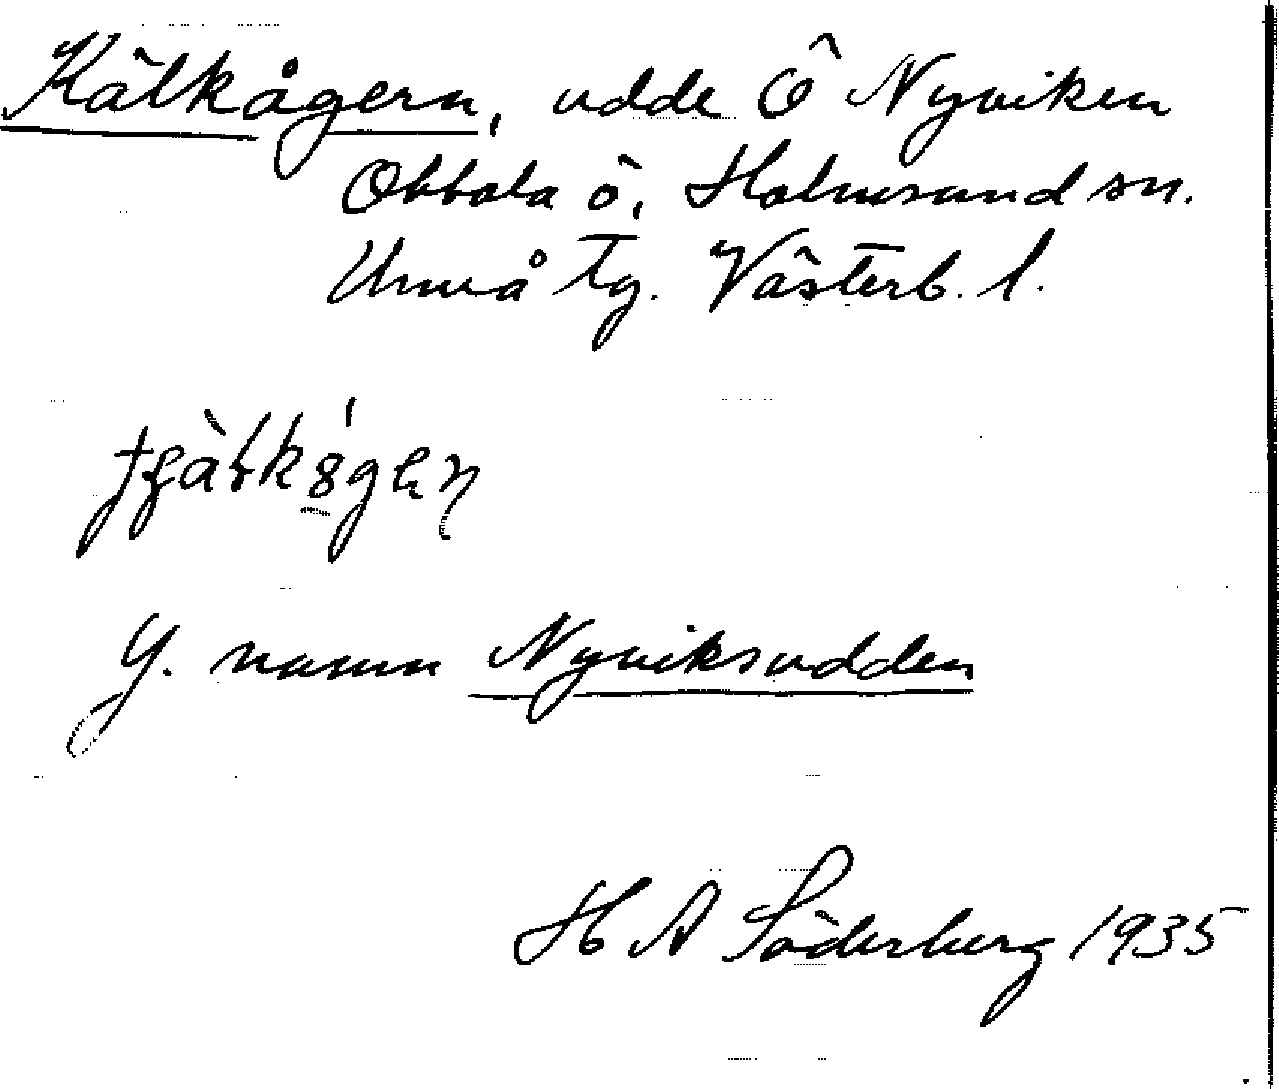 Kälkågern, udde Ö Nyviken
Obbola ö, Holmsund sn.
Umeå tg. Västerb. l.
Y. namn Nyviksudden
H A Söderberg 1935